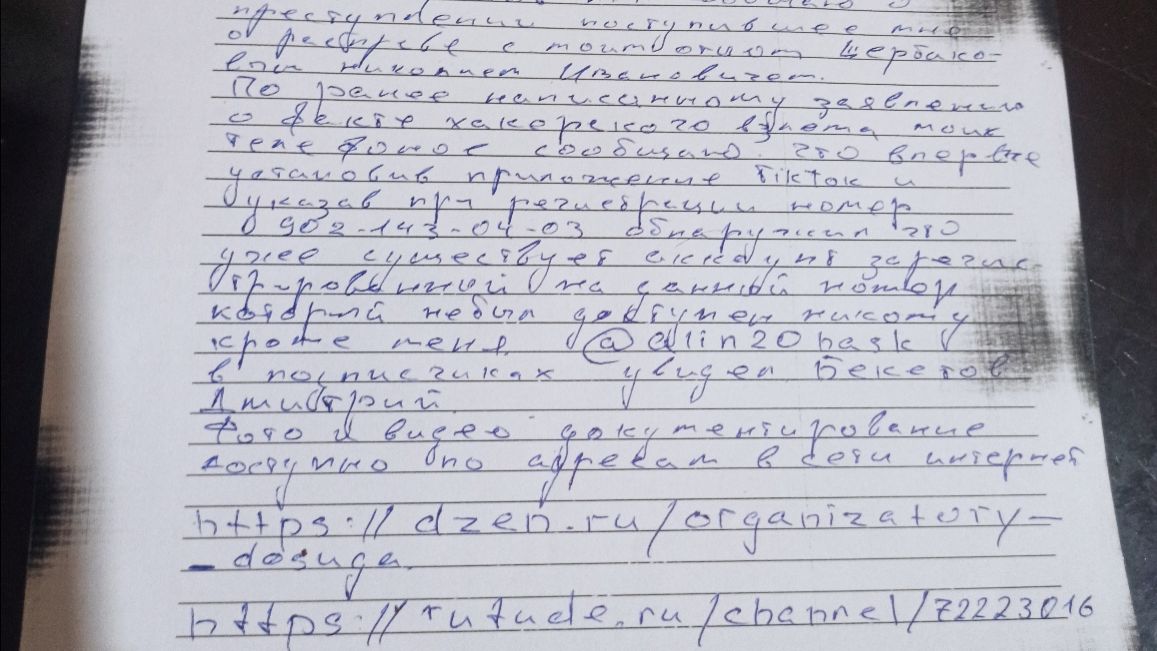 преступлении поступившее мне
о расправе с моим отцом Щербако-
вым Николаем Ивановичем.
По ранее написанному заявлению
о факте хакерского взлома моих
телефонов сообщаю. Что впервые
установив приложение TikTok и
указав при регистрации номер
902-143-04-03 обнаружил что
уже существует аккаунт зарегис-
трированный на данный номер
который небыл доступен никому
кроме меня. @dlin20hask
в подписчиках увидел Бекетов
Дмитрий.
Фото и видео документирование
доступно по адресам в сети интернет
https://dzen.ru/organizatory-
-dosuga.
https://rutude.ru/channel/72223016